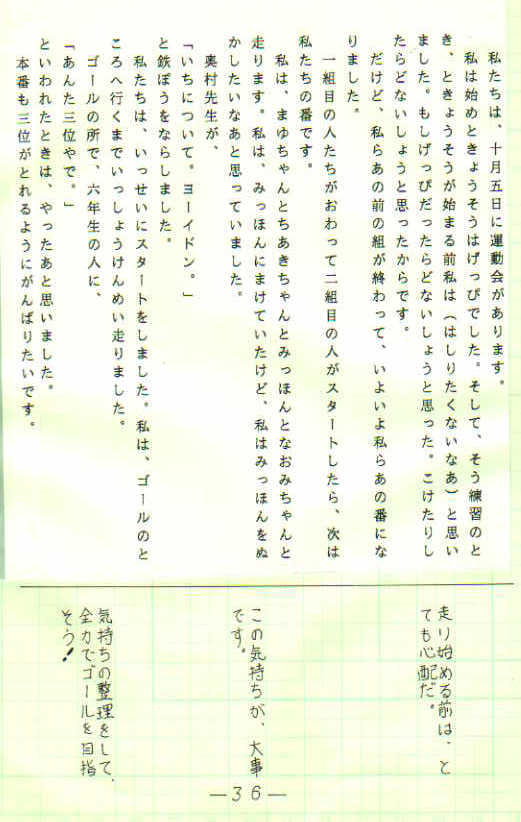 私たちは、十月五日に運動会があります。
私は始めときょうそうはげっぴでした。そして、そう練習のと
き、ときょうそうが始まる前私は(はしりたくないなあ)と思い
ました。もしげっぴだったらどないしょうと思った。こけたりし
たらどないしょうと思ったからです。
だけど、私らあの前の組が終わって、いよいよ私らあの番にな
りました。
一組目の人たちがおわって二組目の人がスタートしたら、次は
私たちの番です。
私は、まゆちゃんとちあきちゃんとみっほんとなおみちゃんと
走ります。私は、みっほんにまけていたけど、私はみっほんをぬ
かしたいなあと思っていました。
奥村先生が、
「いちについて。ヨーイドン。」
と鉄ぽうをならしました。
私たちは、いっせいにスタートをしました。私は、ゴールのと
ころへ行くまでいっしょうけんめい走りました。
ゴールの所で、六年生の人に、
「あんた三位やで。」
といわれたときは、やったあと思いました。
本番も三位がとれるようにがんばりたいです。
走り始める前は、と
ても心配だ。
この気持ちが、大事
です。
気持ちの整理をして、
全力でゴールを目指
そう!
—36—